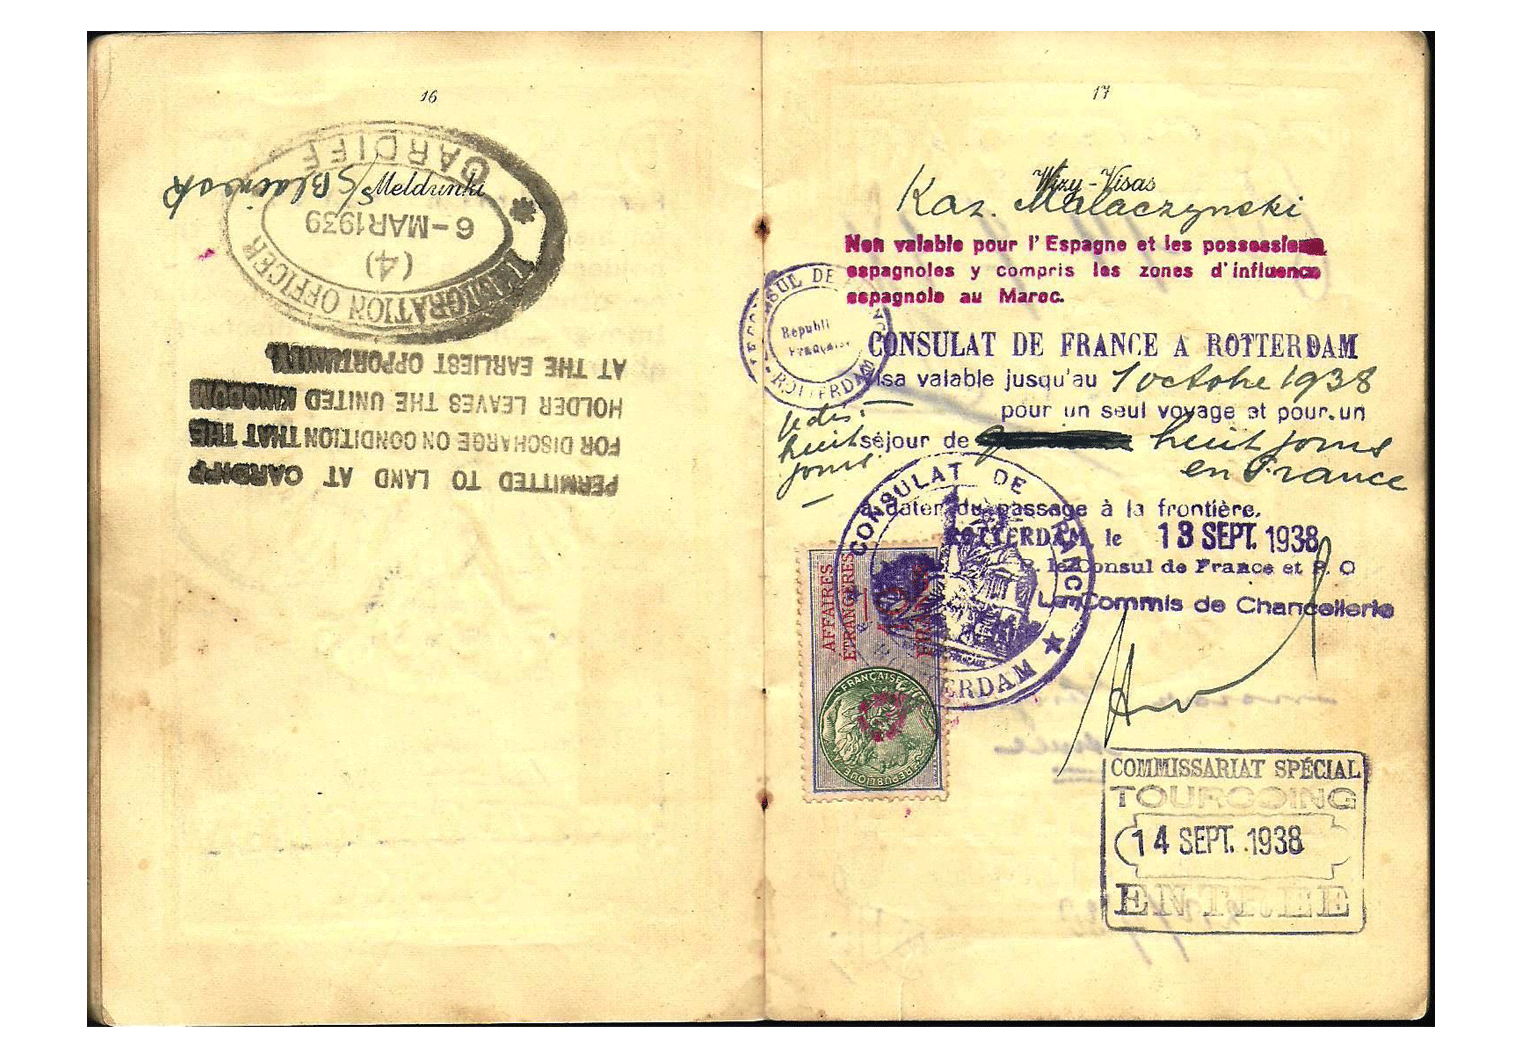 16
Meldunki
IMMIGRATION OFFICER
CARDIFF
(4)
6 - MAR 1939
S/S Blairesk
PERMITTED TO LAND AT CARDIFF
FOR DISCHARGE ON CONDITION THAT THIS
HOLDER LEAVES THE UNITED KINGDOM
AT THE EARLIEST OPPORTUNITY.
17
Wizy-Visas
Kaz. Malaczynski
Non valable pour l'Espagne et les possessions
espagnoles y compris les zones d'influence
espagnole au Maroc.
CONSUL DE
ROTTERDAM
Républi
Française
CONSULAT DE FRANCE A ROTTERDAM
Visa valable jusqu'au 1 octobre 1938
pour un seul voyage et pour un
séjour de huit jours
en France
je dis:
huit
jours.
à dater du passage à la frontière.
ROTTERDAM, le 13 SEPT. 1938
P. le Consul de France et P. O
Le Commis de Chancellerie
CONSULAT DE FRANCE
ROTTERDAM
AFFAIRES
ÉTRANGÈRES
FRANCS
REPUBLIQUE FRANÇAISE
COMMISSARIAT SPÉCIAL
TOURCOING
14 SEPT. 1938
ENTRÉE